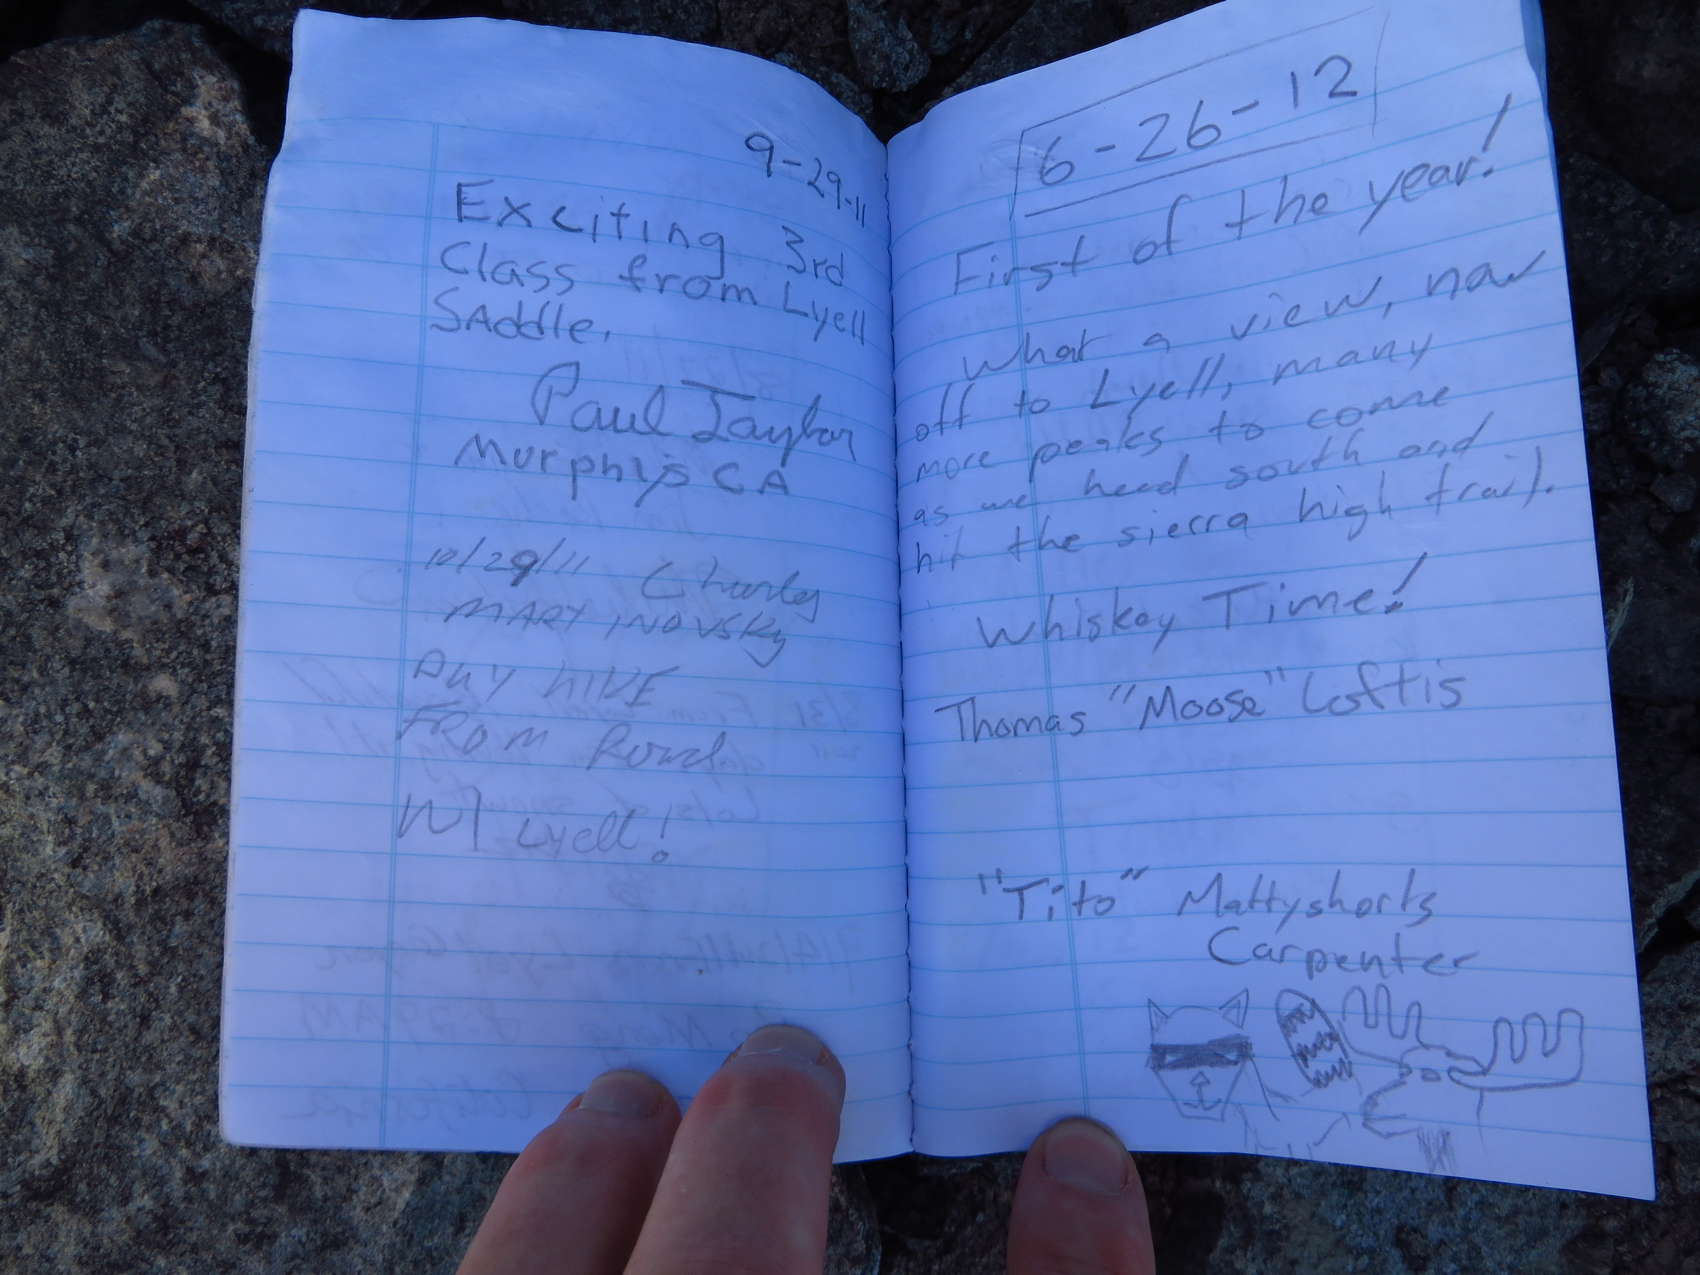 9-29-11
Exciting 3rd
Class from Lyell
SAddle.
Paul Taylor
Murphys CA
10/29/11 Charley
MARY INOVSKY
DAY HIKE
FROM Road
MT Lyell!
6-26-12
First of the year!
What a view, now
off to Lyell, many
more peaks to come
as we head south and
hit the sierra high trail.
Whiskey Time!
Thomas "Moose" Loftis
"Tito" Mattyshorts
Carpenter